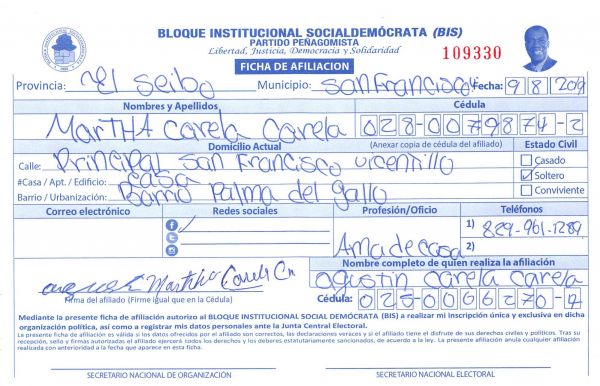 BLOQUE INSTITUCIONAL SOCIALDEMÓCRATA (BIS)
PARTIDO PEÑAGOMISTA
Libertad, Justicia, Democracia y Solidaridad
109330
FICHA DE AFILIACION
Provincia: El Seibo Municipio: San Francisco Fecha: 9 8 2019
Nombres y Apellidos Cédula
MarTHA Carela Carela 028-0079874-2
Domicilio Actual (Anexar copia de cédula del afiliado) Estado Civil
Calle: Principal San Francisco Vicentillo Casado
#Casa / Apt. / Edificio: Casa Soltero
Barrio / Urbanización: Barrio Palma del gallo Conviviente
Correo electrónico Redes sociales Profesión/Oficio Teléfonos
1) 829-961-1289
Ama de casa 2)
Nombre completo de quien realiza la afiliación
Martha Carela
agustin Carela Carela
Firma del afiliado (Firme igual que en la Cédula) Cédula: 025-0066270-4
Mediante la presente ficha de afiliación autorizo al BLOQUE INSTITUCIONAL SOCIAL DEMÓCRATA (BIS) a realizar mi inscripción única y exclusiva en dicha
organización política, así como a registrar mis datos personales ante la Junta Central Electoral.
La presente ficha de afiliación es válida si los datos ofrecidos por el afiliado son correctos, las declaraciones veraces y si el afiliado tiene el disfrute de sus derechos civiles y políticos. Tras su
recepción, sello y firmas autorizadas el afiliado ejercerá todos los derechos y los deberes estatutariamente sancionados, de acuerdo a la ley. La presente afiliación anula cualquier afiliación
realizada con anterioridad a la fecha que aparece en esta ficha.
SECRETARIO NACIONAL DE ORGANIZACIÓN SECRETARIO NACIONAL ELECTORAL